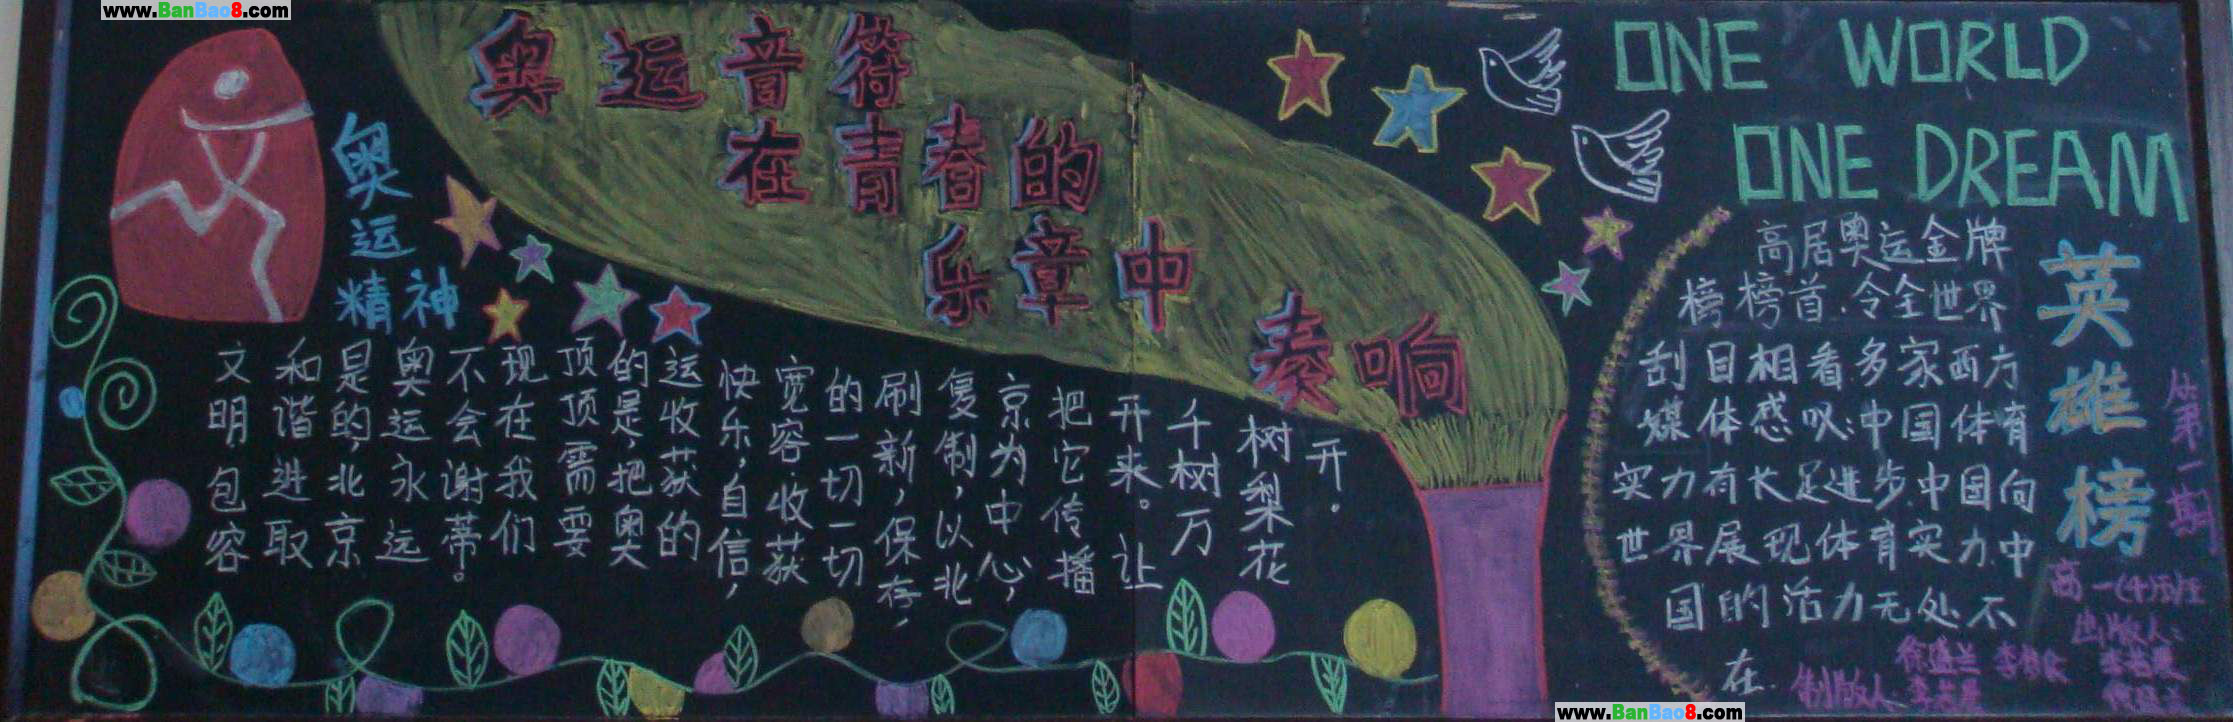 www.BanBao8.com
奥运音符
在青春的
乐章中
奏响
奥运
精神
文明包容
和谐进取
是的,北京
奥运永远
不会谢蒂。
现在我们
顶顶需要
的是,把奥
运收获的
快乐,自信,
宽容.收获
的一切一切
刷新,保存,
复制,以北
京为中心,
把它传播
开来。让
千树万
树梨花
开.
ONE WORLD
ONE DREAM
英雄榜
高居奥运金牌
榜榜首.令全世界
刮目相看.多家西方
媒体感叹:中国体育
实力有长足进步.中国向
世界展现体育实力.中
国的活力无处不
在.
第一期
出版人:
制版人:
www.BanBao8.com